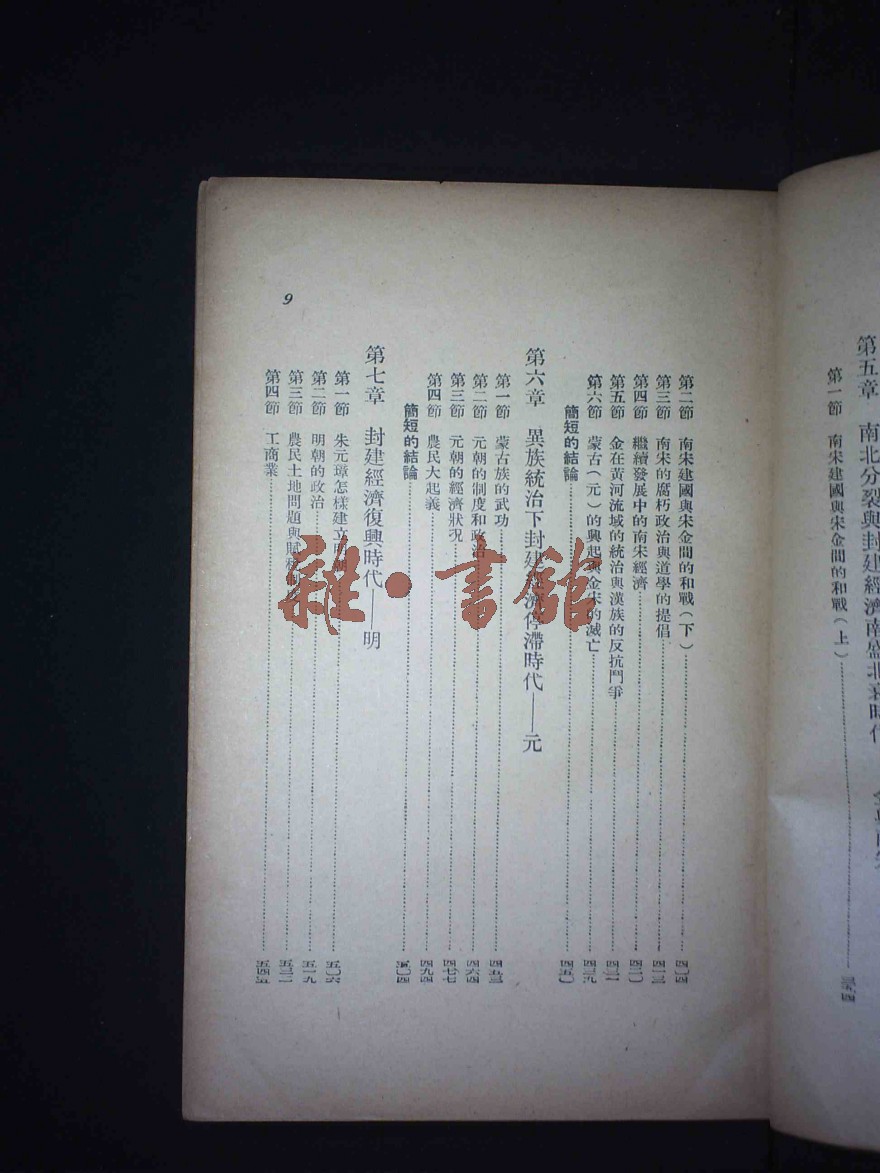 第五章　南北分裂與封建經濟南盛北衰時代
第一節　南宋建國與宋金間的和戰（上）
第二節　南宋建國與宋金間的和戰（下）……四〇四
第三節　南宋的腐朽政治與道學的提倡……四一三
第四節　繼續發展中的南宋經濟……四二〇
第五節　金在黃河流域的統治與漢族的反抗鬥爭
第六節　蒙古（元）的興起與金宋的滅亡……四三九
簡短的結論……四五〇
第六章　異族統治下封建經濟停滯時代——元
第一節　蒙古族的武功……四五三
第二節　元朝的制度和政治……四六四
第三節　元朝的經濟狀況……四七七
第四節　農民大起義……四九四
簡短的結論……五〇四
第七章　封建經濟復興時代——明
第一節　朱元璋怎樣建立……五〇六
第二節　明朝的政治……五一九
第三節　農民土地問題與賦……五三二
第四節　工商業……五四五
9
雜·書館